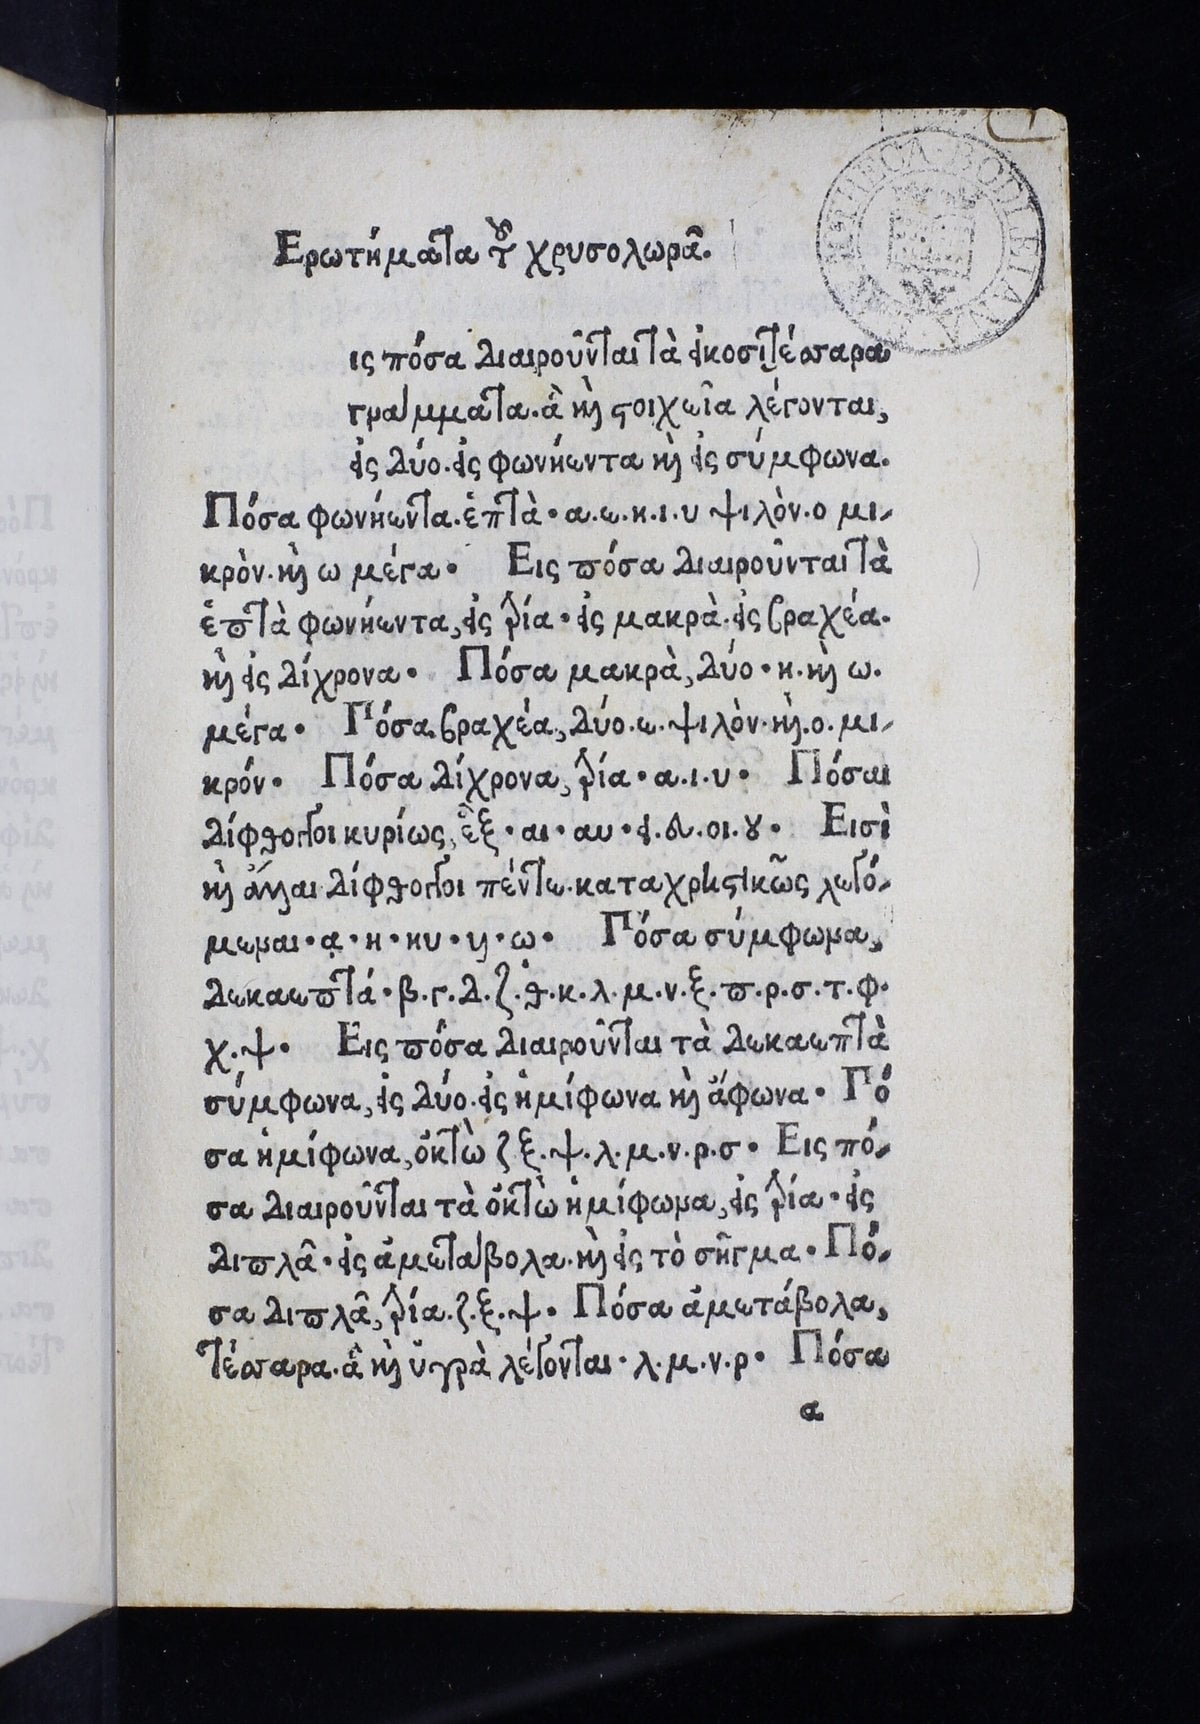 1
BIBLIOTHECA BODLEIANA
Ερωτήματα τοῦ χρυσολωρᾶ.
ις πόσα διαιροῦνται τὰ εἰκοσιτέσσαρα
γράμματα. ἃ καὶ στοιχεῖα λέγονται,
εἰς δύο. εἰς φωνήεντα καὶ εἰς σύμφωνα.
Πόσα φωνήεντα. ἑπτὰ· α. ε. η. ι. υ ψιλὸν. ο μι-
κρὸν. καὶ ω μέγα· Εις πόσα διαιροῦνται τὰ
ἑπτὰ φωνήεντα, εἰς τρία· εἰς μακρὰ. εἰς βραχέα.
καὶ εἰς δίχρονα· Πόσα μακρὰ, δύο· η. καὶ ω.
μέγα· Πόσα βραχέα, δύο. ε. ψιλὸν. καὶ. ο. μι-
κρόν· Πόσα δίχρονα, τρία· α. ι. υ· Πόσαι
δίφθογγοι κυρίως, ἓξ· αι· αυ· ει. ευ. οι. ου· Εισὶ
καὶ ἄλλαι δίφθογγοι πέντε. καταχρηστικῶς λεγό-
μεναι· ᾳ· η· ηυ· υι· ω· Πόσα σύμφωνα,
δεκαεπτά· β. γ. δ. ζ. θ. κ. λ. μ. ν. ξ. π. ρ. σ. τ. φ.
χ. ψ· Εις πόσα διαιροῦνται τὰ δεκαεπτὰ
σύμφωνα, εἰς δύο. εἰς ἡμίφωνα καὶ ἄφωνα· Πό
σα ἡμίφωνα, ὀκτὼ ζ ξ. ψ. λ. μ. ν. ρ. σ· Εις πό-
σα διαιροῦνται τὰ ὀκτὼ ἡμίφωνα, εἰς τρία· εἰς
διπλᾶ· εἰς ἀμετάβολα. καὶ εἰς τὸ σῆγμα· Πό-
σα διπλᾶ, τρία. ζ. ξ. ψ· Πόσα ἀμετάβολα,
τέσσαρα. ἃ καὶ ὑγρὰ λέγονται· λ. μ. ν. ρ· Πόσα
α